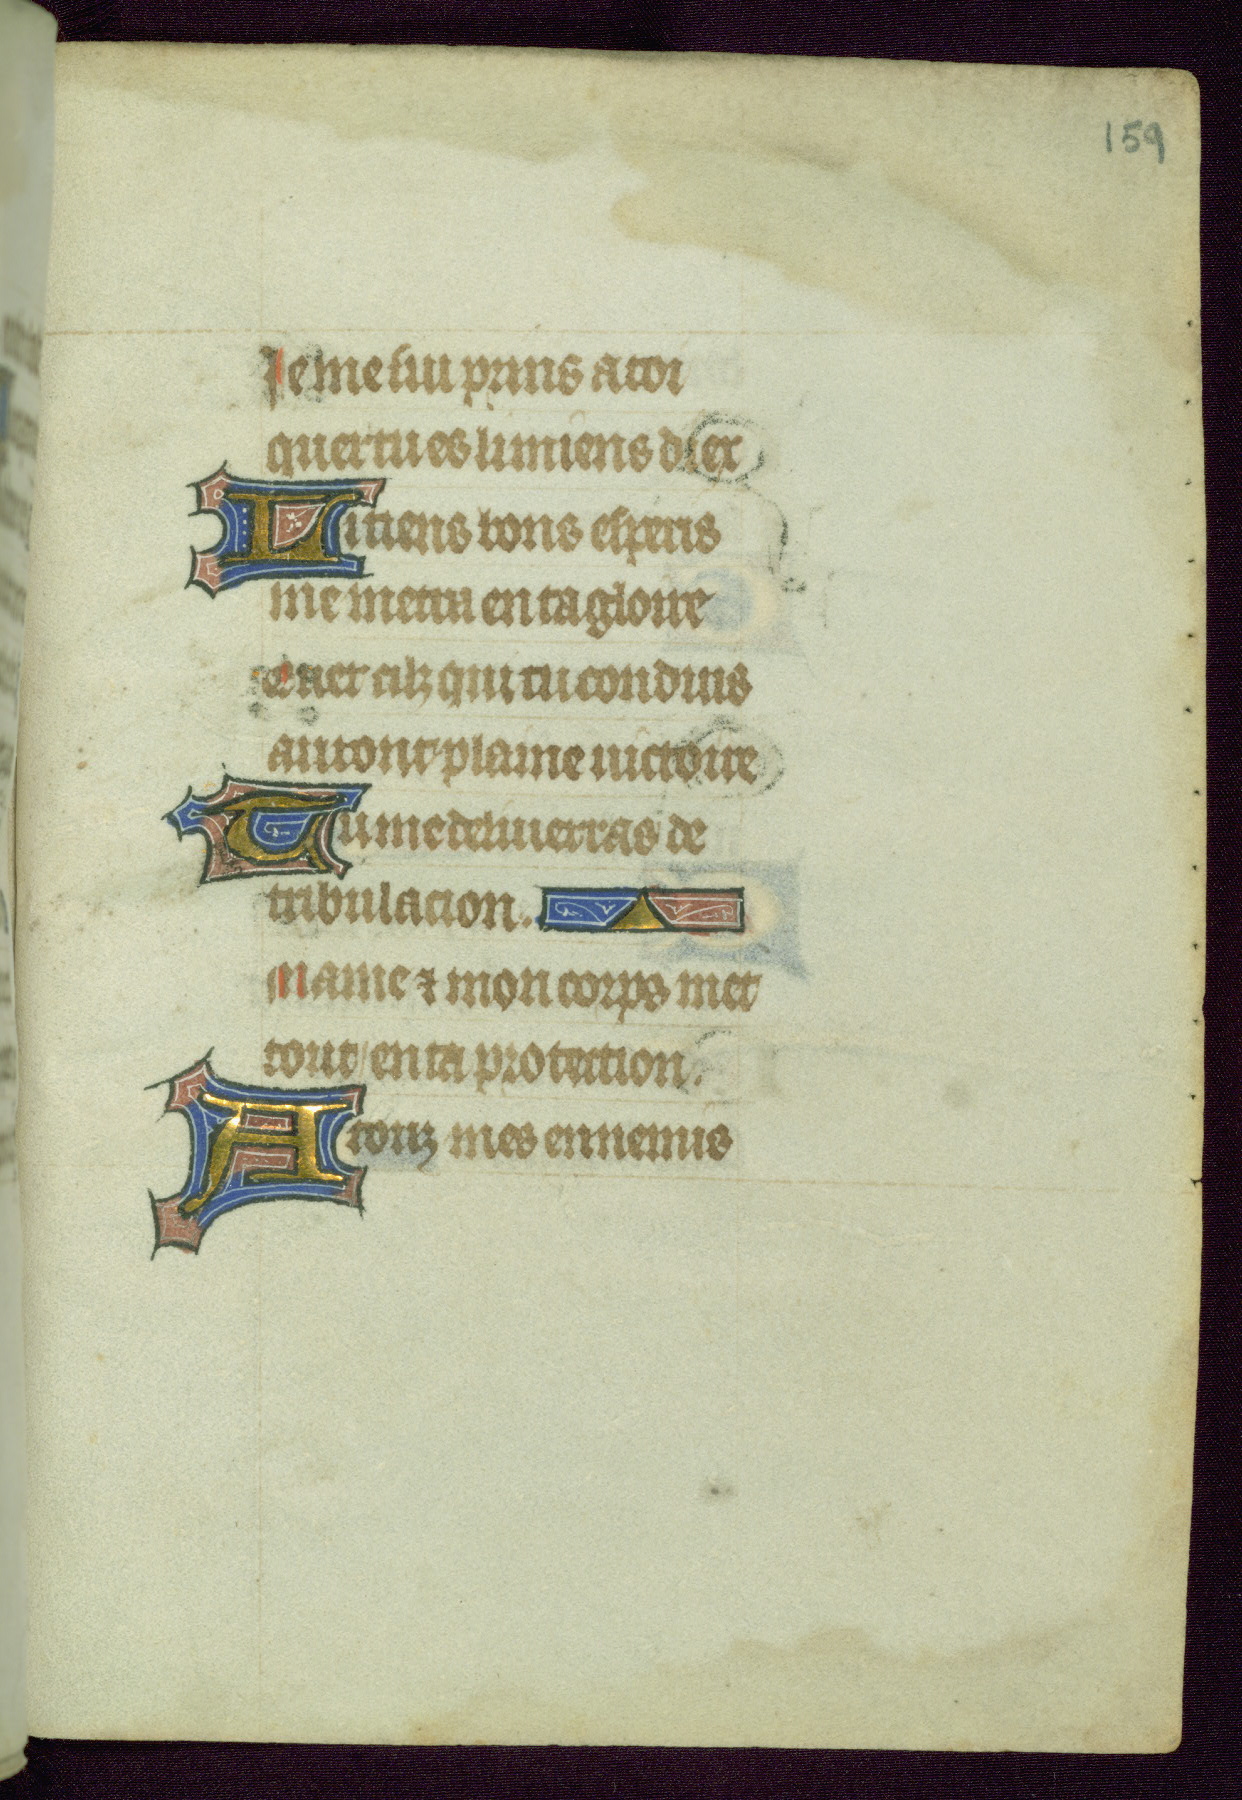 159
Je me sui prins a toi
quer tu es lumiens diex
Litiens bons esperis
me metra en ta gloire
Euet cilz qui tu conduis
auront plaine uictoire
Tu me deliuerras de
tribulacion.
Mame ⁊ mon corps met
tout en ta protection.
A touz mes ennemis